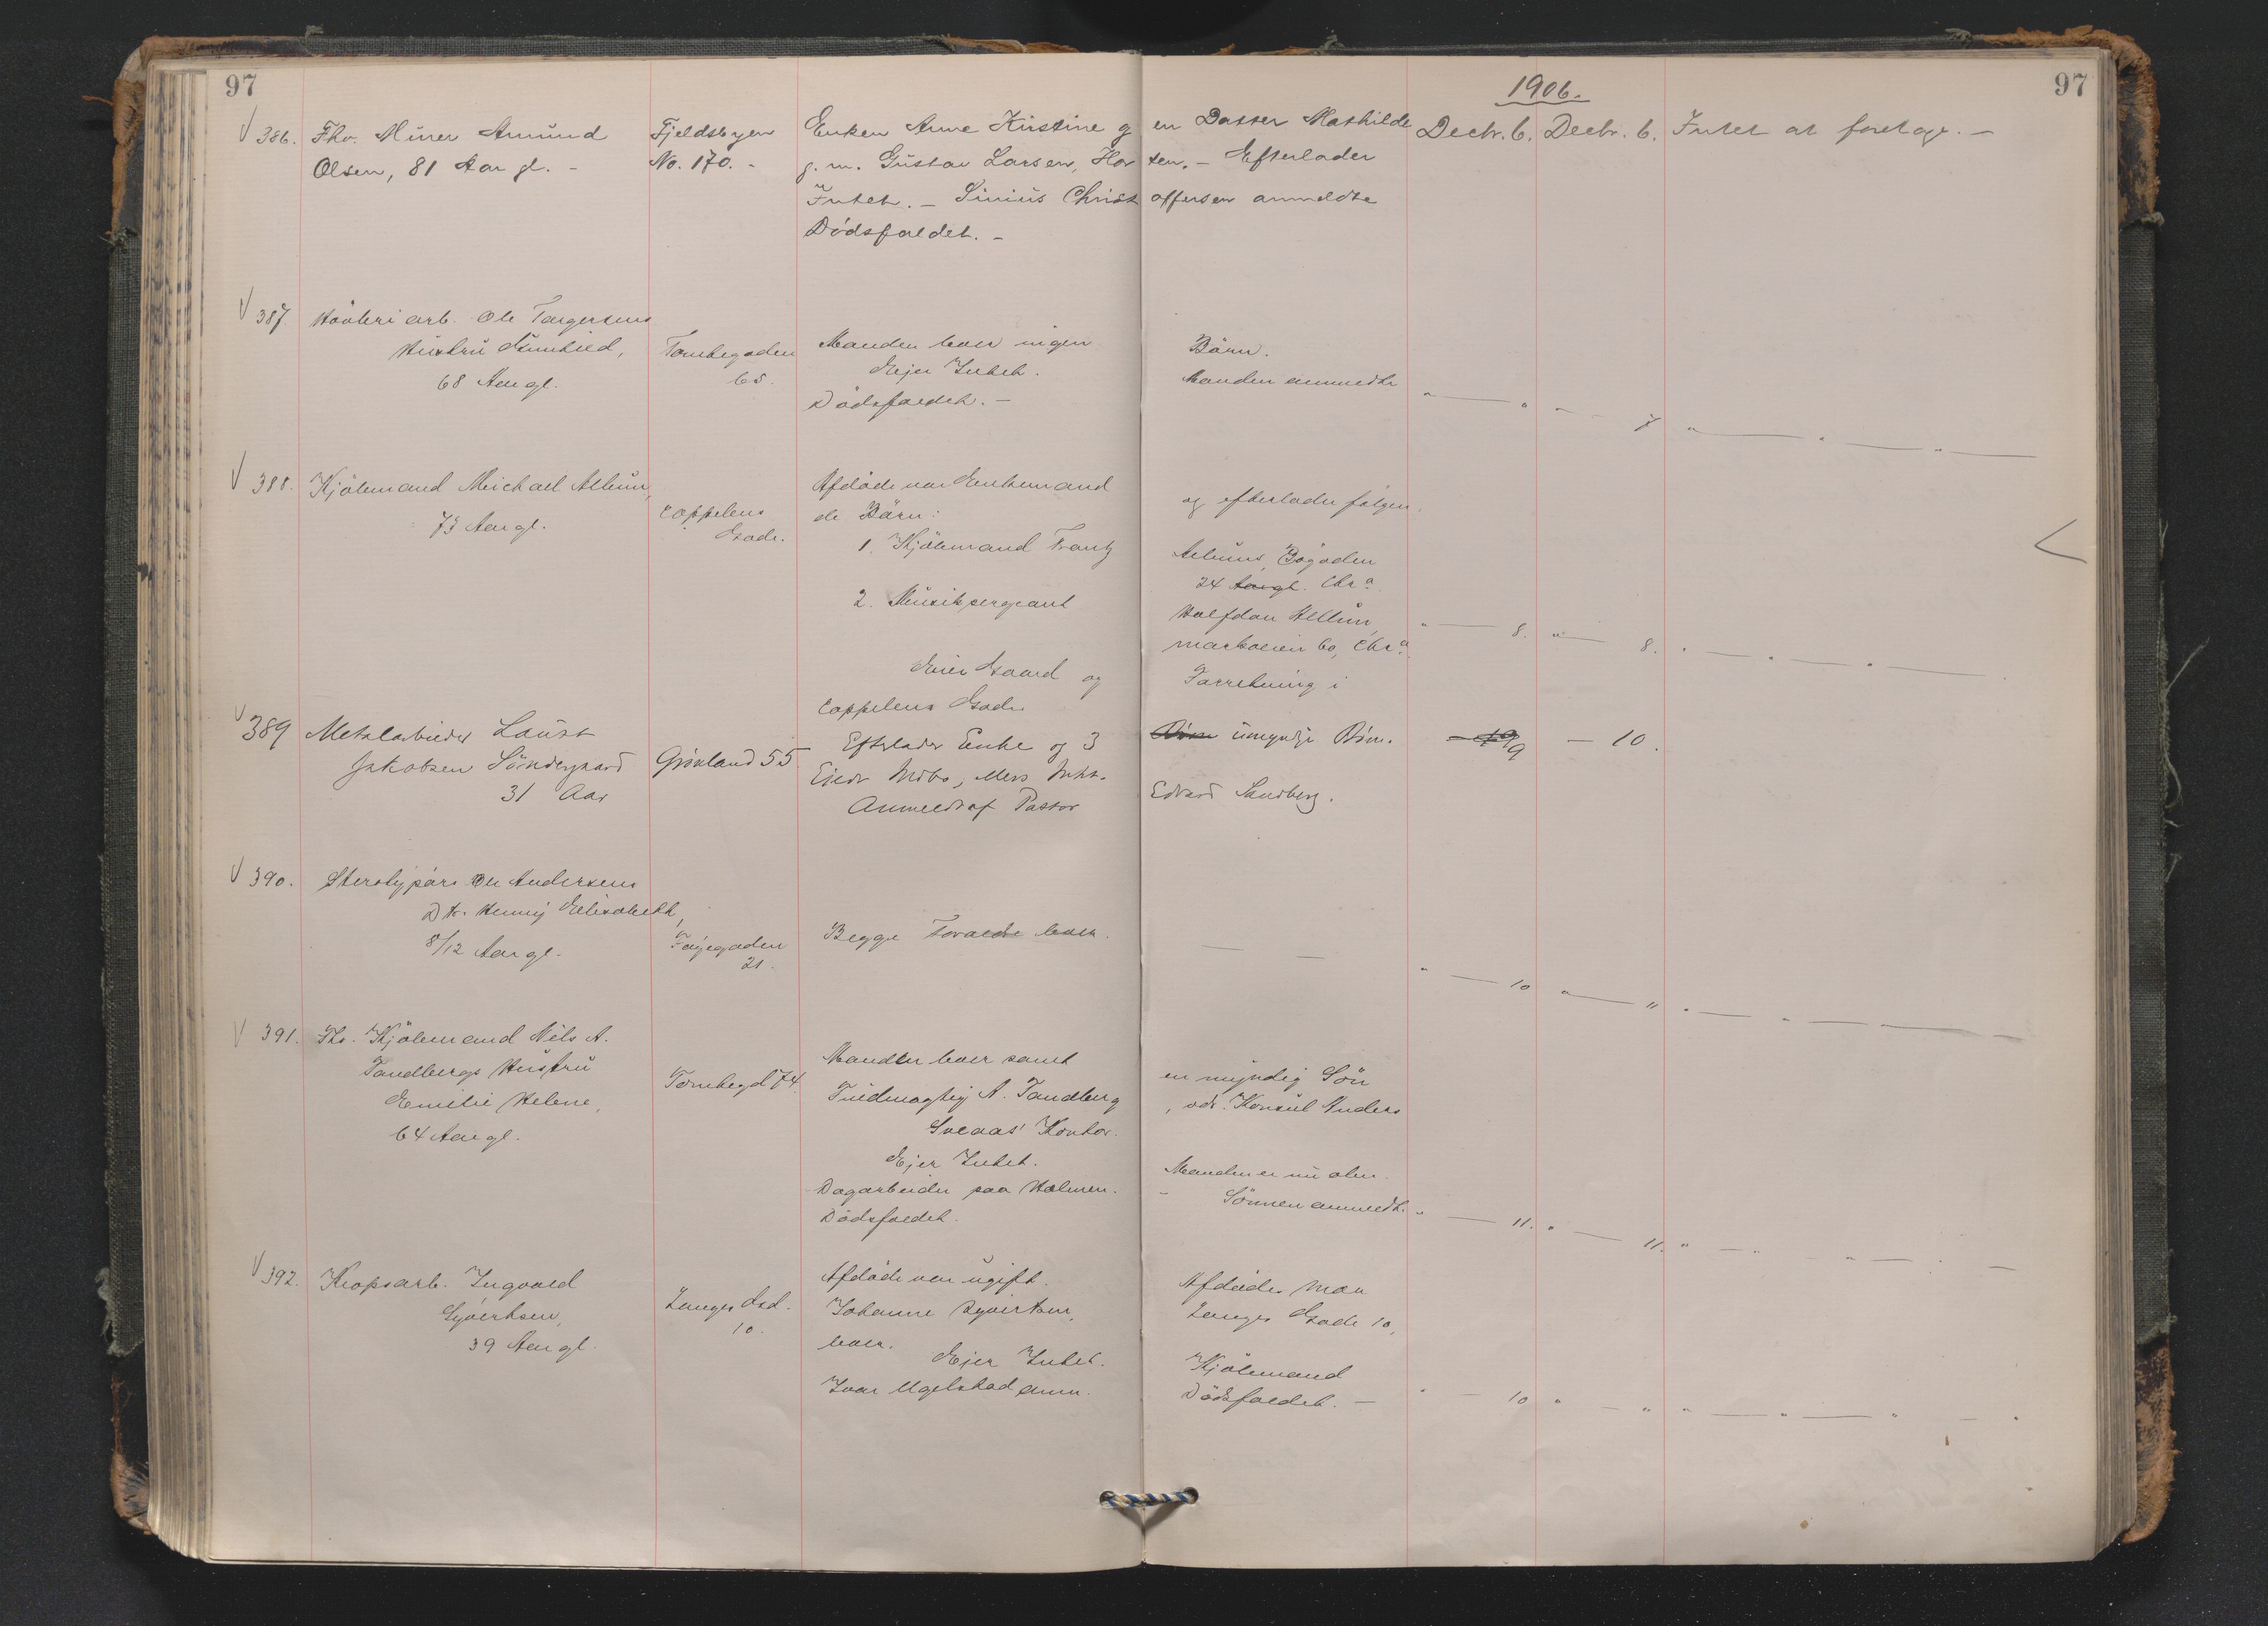 97
97
1906.
386. Fhv. Murer Amund Fjeldbyen Enken Anne Kirstine og en Datter Mathilde Decbr. 6. Decbr. 6. Intet at foretage. —
Olsen, 81 Aar gl. - No. 170. - g. m. Gustav Larsen, Horten. — Efterlader
Intet. — Sinius Christoffersen anmeldte
Dödsfaldet. —
387. Høvleri arb. Ole Torgersens
Hustru Gunhild, Tombegaden Manden lever ingen Børn.
68 Aar gl. 65. Ejer Intet. Manden anmeldte
Dødsfaldet. — " — " — 7 " — " — " —
388. Kjølemand Michael Allum, Afdøde var Enkemand og efterlader følgen
73 Aar gl. Coppelens Gade. de Børn:
1. Kjølemand Frantz Allum, Bogaden
24 Aar gl. Chr.a
2. Musiksergeant Halfdan Allum,
markveien 60, Chr.a " — 8. " — 8. " — " — " —
Eier Gaard og Forretning i
Coppelens Gade
389 Metalarbeider Laurst Efterlader Enke og 3 Børn umyndige Børn. — 9 — 10.
Jakobsen Söndergaard Grønland 55 Eiede Indbo, Mers Intet.
31 Aar Anmeldt af Pastor Edvard Sandberg.
390. Ole Andersens
Dtr. Henny Elisabeth,
8/12 Aar gl. Føyegaden Begge Foraeldre lever. — —
21. " — 10 " — " " — " — " —
391. Fhv. Kjølemand Nils A.
Tandbergs Hustru Manden lever samt en myndig Søn
Emilie Helene, Tombegd 74. Fuldmægtig A. Tandberg, adr. Konsul Anders
64 Aar gl. Sveaas' Kontor.
Ejer Intet. Manden er nu alm.
Dagarbeider paa Holmen. - Sønnen anmeldte " — 11. " — 11. " — " — " — " —
Dødsfaldet.
392. Kropsarb. Ingvald Afdøde var ugift. Afdødes Mor
Syvertsen, Langes Gad. Johanne Syvertsen, Langes Gade 10,
39 Aar gl. 10. lever.
Ejer Intet. Kjølemand
Ivar Ugelstad anm. Dødsfaldet. — " — 10 " — " " — " — " — "